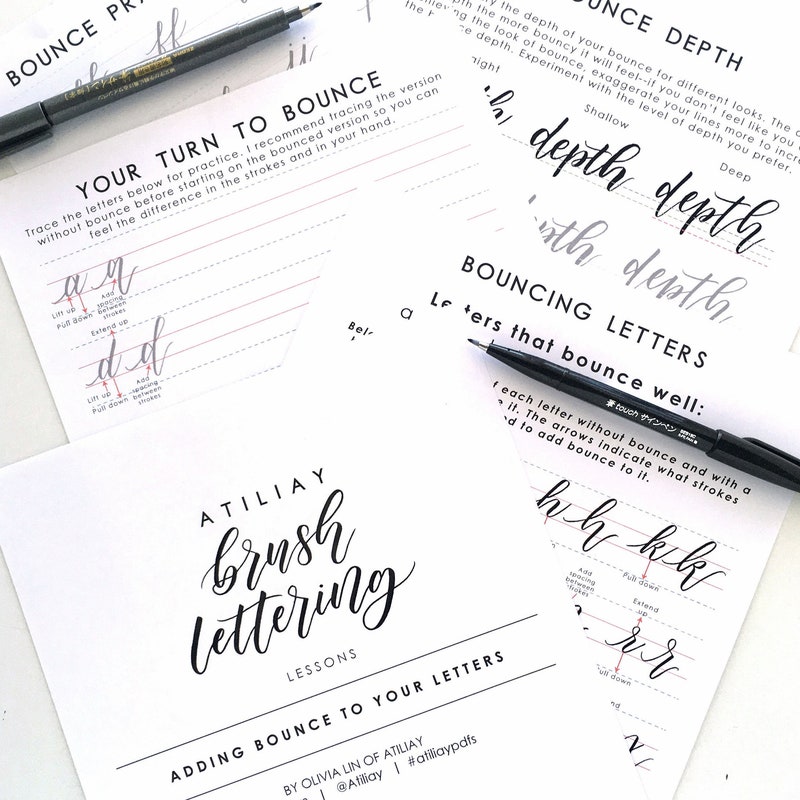 BOUNCE
ff
jj
YOUR TURN TO BOUNCE
Trace the letters below for practice. I recommend tracing the version
without bounce before starting on the bounced version so you can
feel the difference in the strokes and in your hand.
a a
Lift up
Pull down
Add
spacing
between
strokes
Extend up
d d
Lift up
Pull down
Add
spacing
between
strokes
BOUNCE DEPTH
the depth of your bounce for different looks. The
the more bouncy it will feel--if you don't feel like you
the look of bounce, exaggerate your lines more to
depth. Experiment with the level of depth you prefer.
Shallow
Deep
depth depth
depth
BOUNCING LETTERS
a
Letters that bounce well:
each letter without bounce and with a
it. The arrows indicate what strokes
to add bounce to it.
touch サインペン
h h k k
Add
spacing
between
strokes
Pull down
Extend
up
r r
down
ATILIAY
brush
lettering
LESSONS
ADDING BOUNCE TO YOUR LETTERS
BY OLIVIA LIN OF ATILIAY
| @Atiliay | #atiliaypdfs